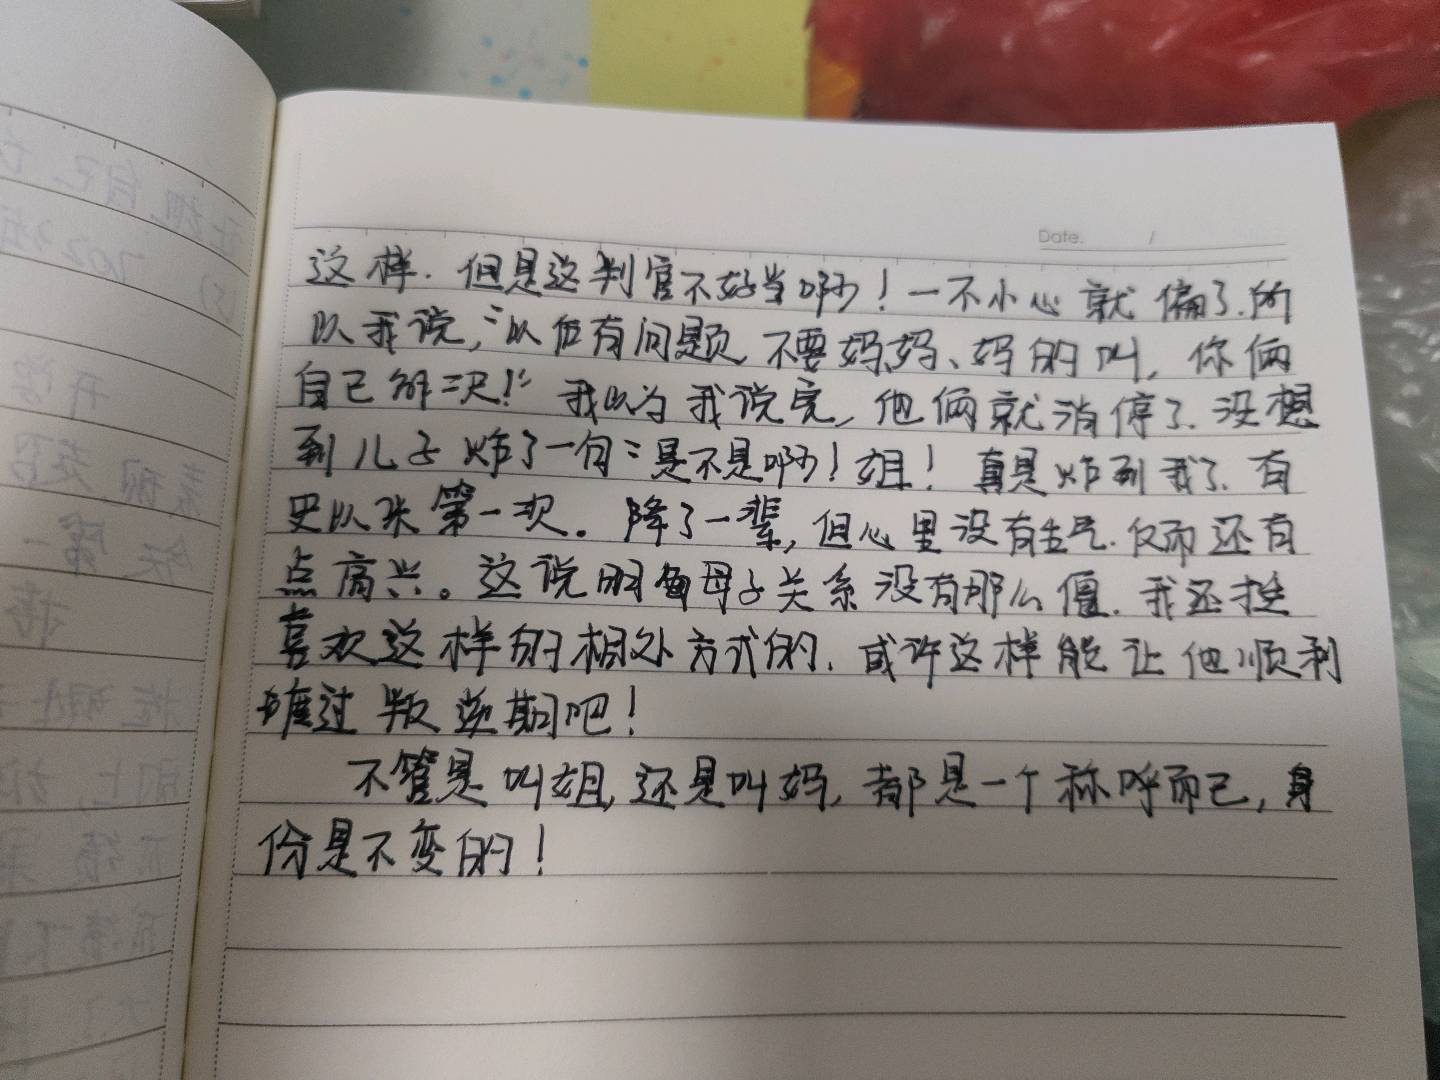 Date. /
这样. 但是这判官不好当啊! 一不小心就偏了. 所
以我说, "以后有问题, 不要妈妈、妈的叫, 你俩
自己解决!" 我以为我说完, 他俩就消停了. 没想
到儿子炸了一句: 是不是啊! 姐! 真是炸到我了. 有
史以来第一次。降了一辈, 但心里没有生气. 反而还有
点高兴。这说明母子关系没有那么僵. 我还挺
喜欢这样的相处方式的. 或许这样能让他顺利
度过叛逆期吧!
不管是叫姐, 还是叫妈, 都是一个称呼而已, 身
份是不变的!